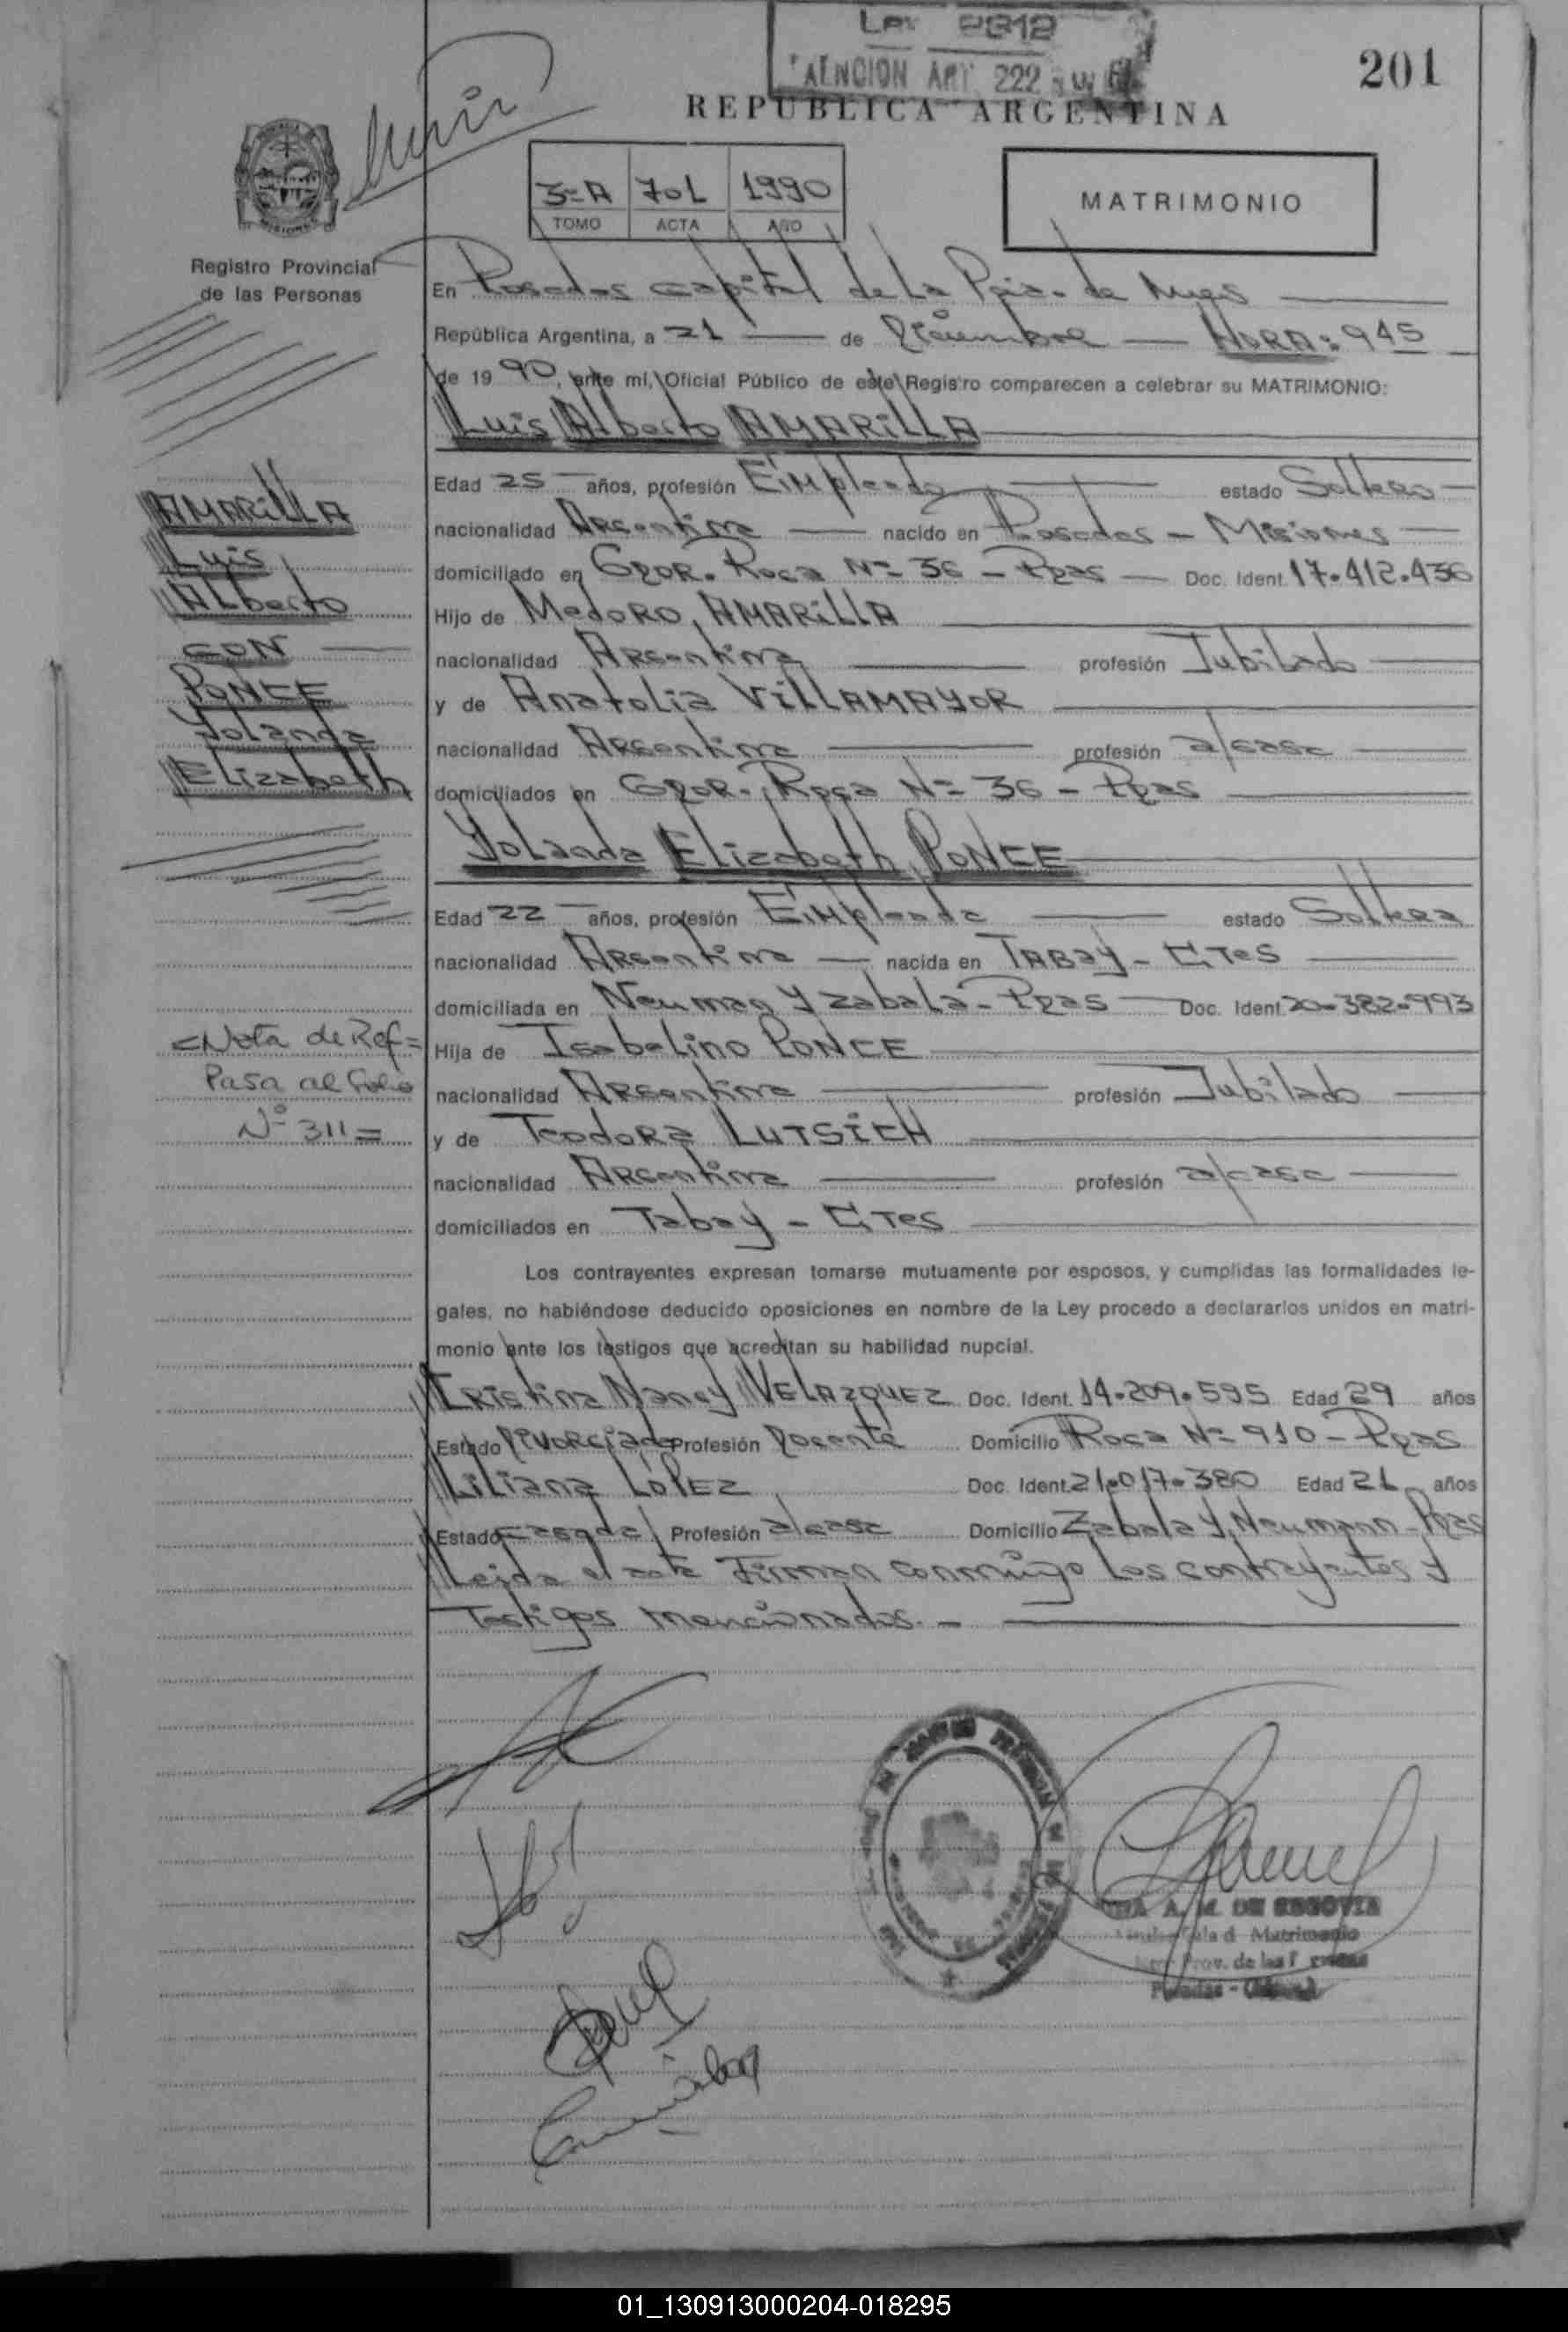 Ley 2812
ATENCION ART. 222
201
REPUBLICA ARGENTINA
3-A 701 1990
TOMO ACTA AÑO
MATRIMONIO
Registro Provincial
de las Personas
En Posadas capital de la Pcia. de Mnes
República Argentina, a 21 de Diciembre HORA: 945
de 1990, ante mí, Oficial Público de este Registro comparecen a celebrar su MATRIMONIO:
Luis Alberto AMARILLA
Edad 25 años, profesión Empleado estado Soltero
nacionalidad Argentina nacido en Posadas - Misiones
domiciliado en GDOR. Roca Nº 36 - Pdas Doc. Ident. 17.412.436
Hijo de Medoro, AMARILLA
nacionalidad Argentina profesión Jubilado
y de Anatolia VILLAMAYOR
nacionalidad Argentina profesión a/casa
domiciliados en GDOR. Roca Nº 36 - Pdas
Yolanda Elizabeth PONCE
Edad 22 años, profesión Empleada estado Soltera
nacionalidad Argentina nacida en TABAY - CTES
domiciliada en Neuman y Zabala - Pdas Doc. Ident. 20.382.993
Hija de Isabelino PONCE
nacionalidad Argentina profesión Jubilado
y de Teodora LUTSICH
nacionalidad Argentina profesión a/casa
domiciliados en Tabay - CTES
Los contrayentes expresan tomarse mutuamente por esposos, y cumplidas las formalidades le-
gales, no habiéndose deducido oposiciones en nombre de la Ley procedo a declararlos unidos en matri-
monio ante los testigos que acreditan su habilidad nupcial.
Cristina Nancy VELAZQUEZ Doc. Ident. 14.209.595 Edad 29 años
Estado Divorciado Profesión Docente Domicilio Roca Nº 910 - Pdas
Liliana LÓPEZ Doc. Ident. 21.017.380 Edad 21 años
Estado casada Profesión a/casa Domicilio Zabala y Neumann - Pdas
Leida el acta Firman conmigo los contrayentes y
Testigos mencionados.-
AMARILLA
Luis
Alberto
CON
PONCE
Yolanda
Elizabeth
=Nota de Ref=
Pasa al folio
Nº 311=
A. M. DE SEGOVIA
Sala d Matrimonio
Prov. de las
Posadas -
01_130913000204-018295